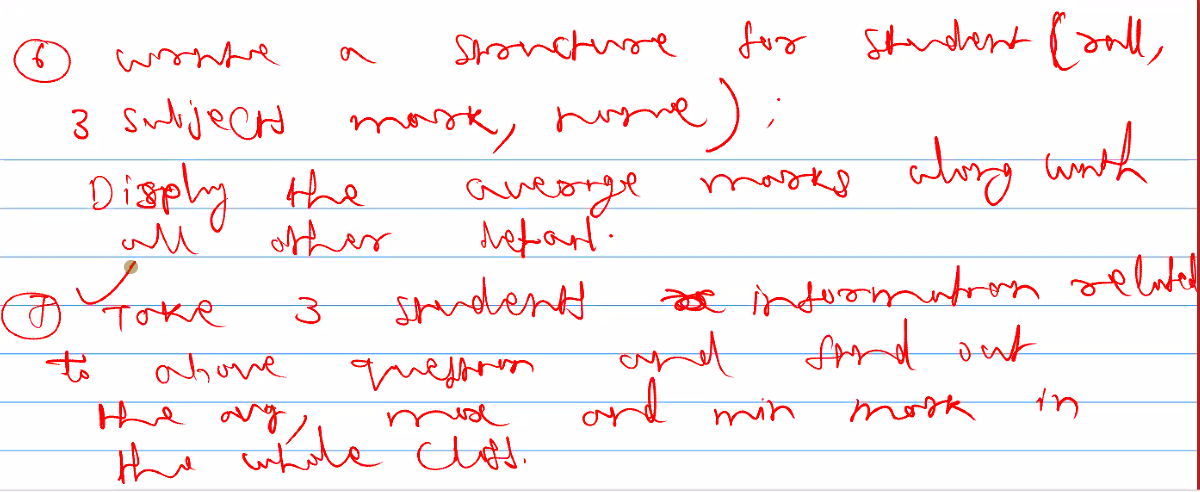 6 write a structure for student (roll,
3 subjects mark, name);
Display the average marks along with
all other detail.
7 Take 3 students information related
to above question and find out
the avg, max and min mark in
the whole class.